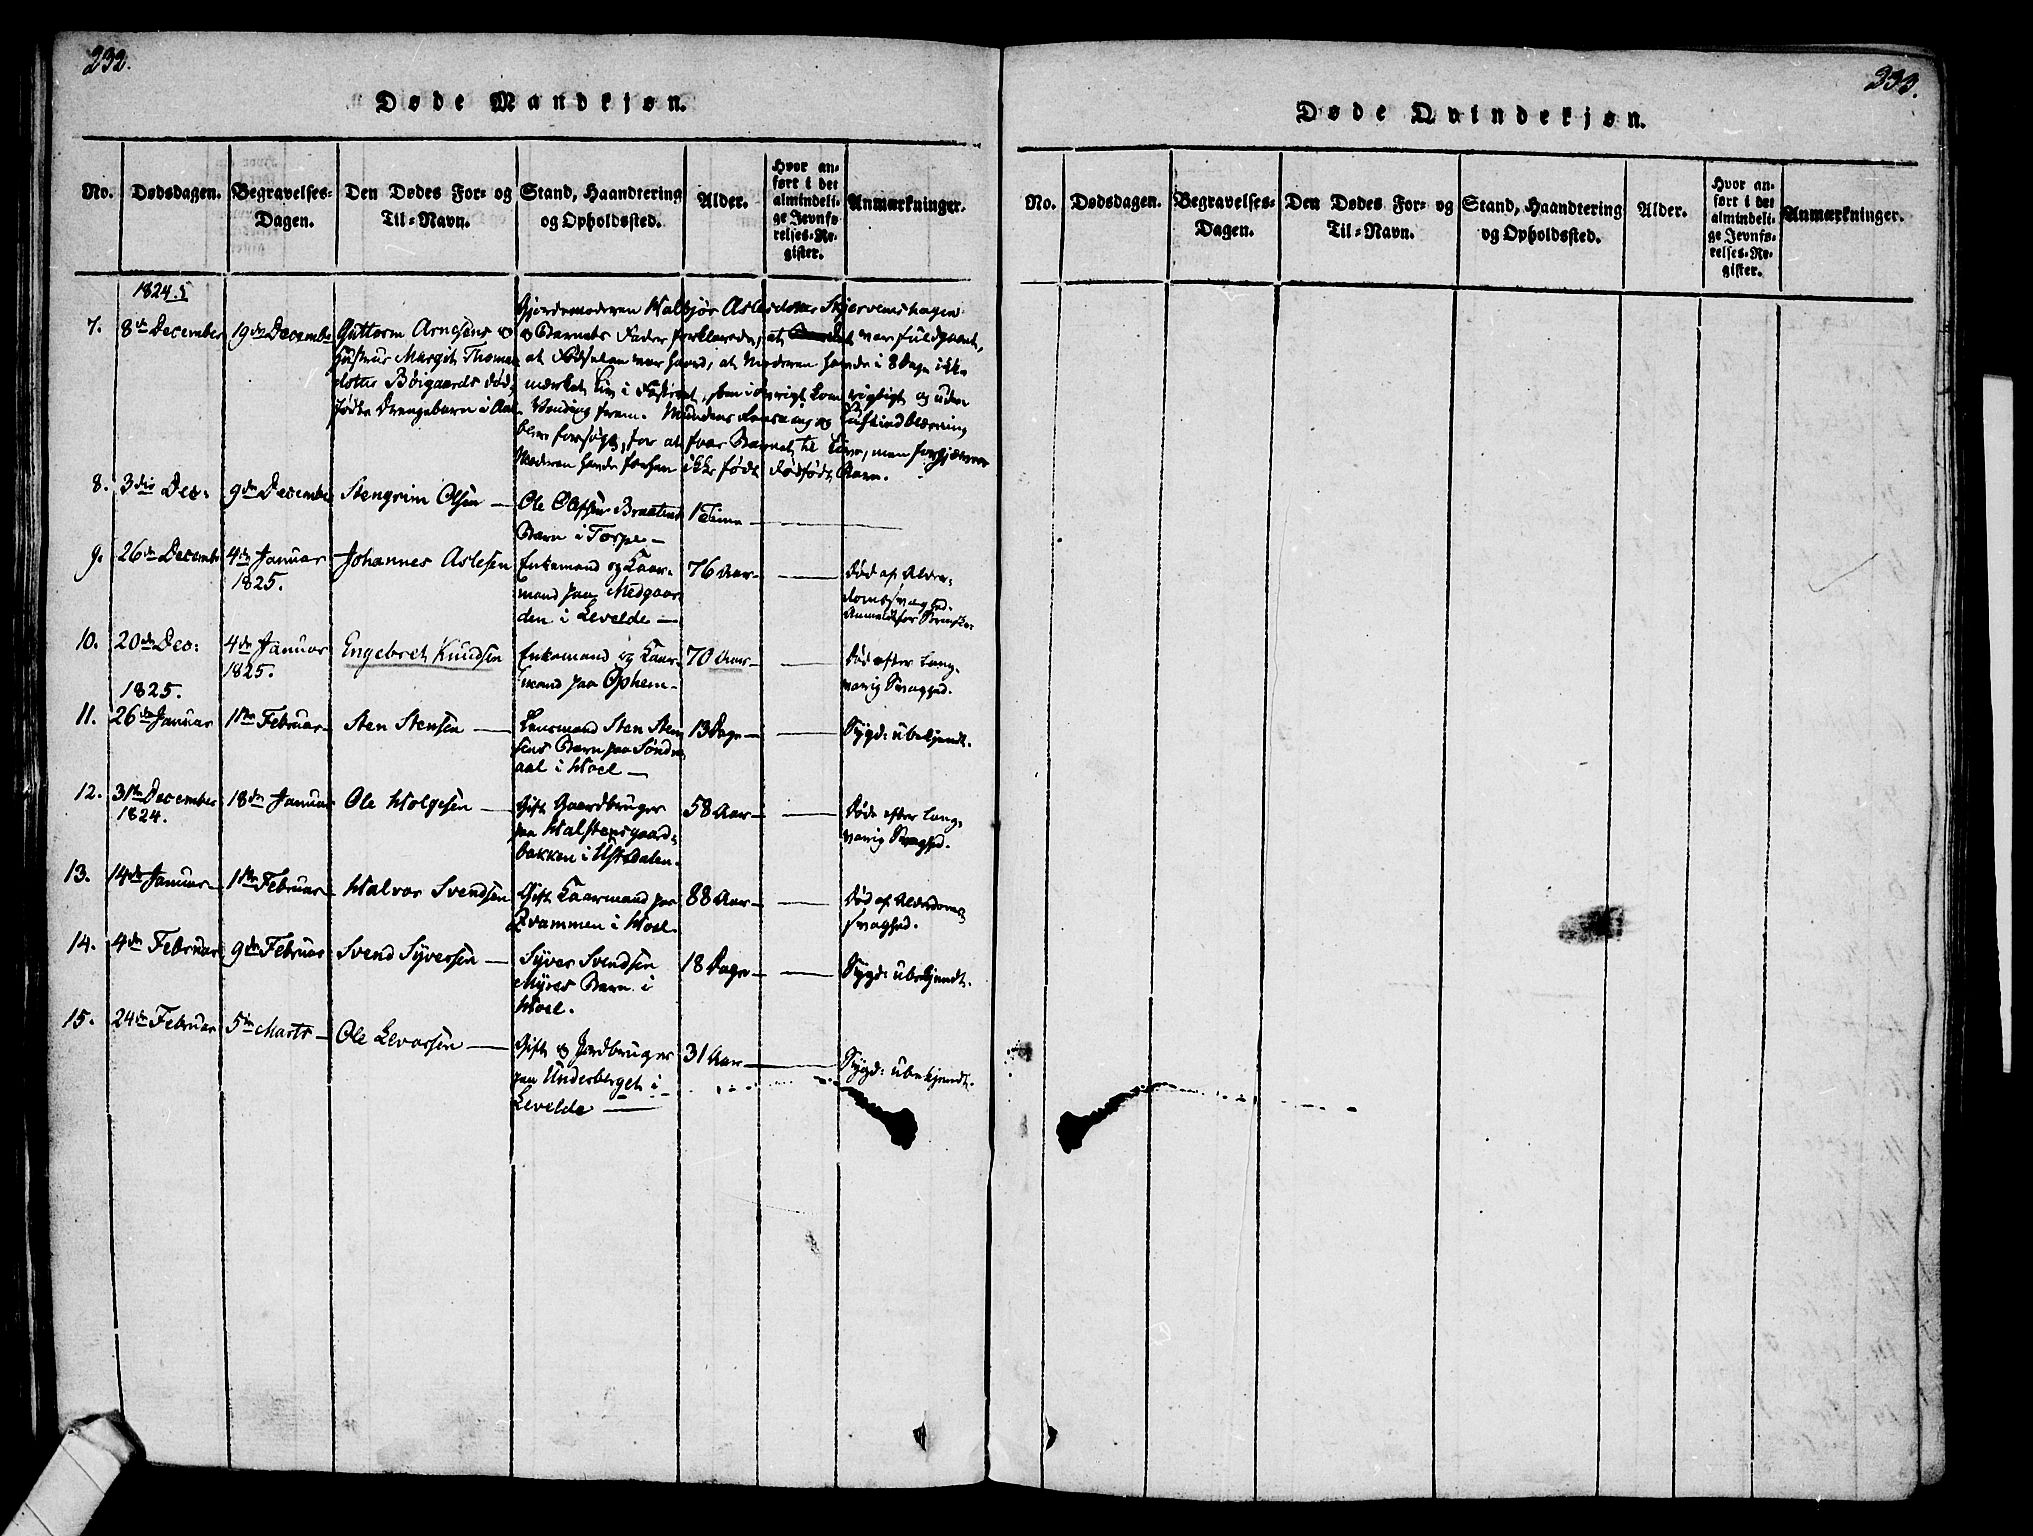 232.
Døde Mandkjøn.
No.
Dødsdagen.
Begravelses-
Dagen.
Den Dødes For- og
Til-Navn.
Stand, Haandtering
og Opholdssted.
Alder.
Hvor an-
ført i det
almindeli-
ge Jevnfø-
relses-Re-
gister.
Anmærkninger.
1824.
7.
8de December
19de Decembr
Guttorm Arnesens og
Hustrus Margit Thomas
dotter Böigaards død,
fødte Drengebarn i Aal.
Gjordemoderen Halbjør Aslesdotter Skjervenshagen
og Barnets Fader forklarede, at Barnet var fuldbaaret,
at Fødselen var haard, at Moderen havde i 8 Dage ikke
mærket Liv i Fosteret, som iøvrigt kom rigtigt og uden
Vending frem. Mundens Rensning og Luftindblæsning
blev forsøgt, for at faae Barnet til Live, men forgjæves
Moderen havde forhen ikke født dødfødt Barn.
8.
3die Dec:
9de December
Stengrim Olsen
Ole Olsens Braatens
Barn i Torpe
1 Time
9.
26de Decembr
4de Januar
1825.
Johannes Aslesen
Enkemand og Kaar-
mand paa Medgaar-
den i Levelde
76 Aar
død af Alder-
domssvaghed.
10.
20de Dec:
4de Januar
1825.
Engebret Knudsen
Enkemand og Kaar-
mand paa Ophem
70 Aar
død efter lang-
varig Svaghed.
1825.
11.
26de Januar
1ste Februar
Sten Stensen
Lensmand Sten Sten
sens Barn paa Søndre
aal i Hoel
13 Dage
Sygd: ubekjendt.
12.
31te December
1824.
18de Januar
Ole Holgesen
Gift Gaardbruger
paa Halstensgaard-
bakken i Ustedalen.
58 Aar
Døde efter lang-
varig Svaghed.
13.
14de Januar
1ste Februar
Halvor Svendsen
Gift Kaarmand paa
Qvammen i Hoel.
88 Aar
Død af Alderdoms
svaghed.
14.
4de Februar
9de Februar
Svend Syversen
Syver Svendsen
Myres Barn i
Hoel.
18 Dage
Sygd: ubekjendt.
15.
24de Februar
5te Marts
Ole Levorsen
Gift og Jordbruger
paa Underberget i
Levelde
31 Aar
Sygd: ubekjendt.
233.
Døde Qvindekjøn.
No.
Dødsdagen.
Begravelses-
Dagen.
Den Dødes For- og
Til-Navn.
Stand, Haandtering
og Opholdssted.
Alder.
Hvor an-
ført i det
almindeli-
ge Jevnfø-
relses-Re-
gister.
Anmærkninger.